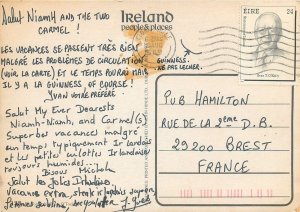 Salut Niamh and the two
Carmel !
Les vacances se passent très bien
malgré les problèmes de circulation
(voir la carte) et le temps pourri mais
il y a la Guinness of course !
Yvan votre préféré
Salut My Ever Dearests
Niamh-Niamh, and Carmel(s)
Superbes vacances malgré
un temps typiquement Irlandais
et les petites culottes Irlandaises
toujours humides...
Bisous Michèle
Salut les
Vacances extra, steak
Ireland
people & places
GUINNESS.
NE PAS LECHER.
ÉIRE 24
PUB HAMILTON
RUE DE LA 2ème D.B.
29200 BREST
FRANCE